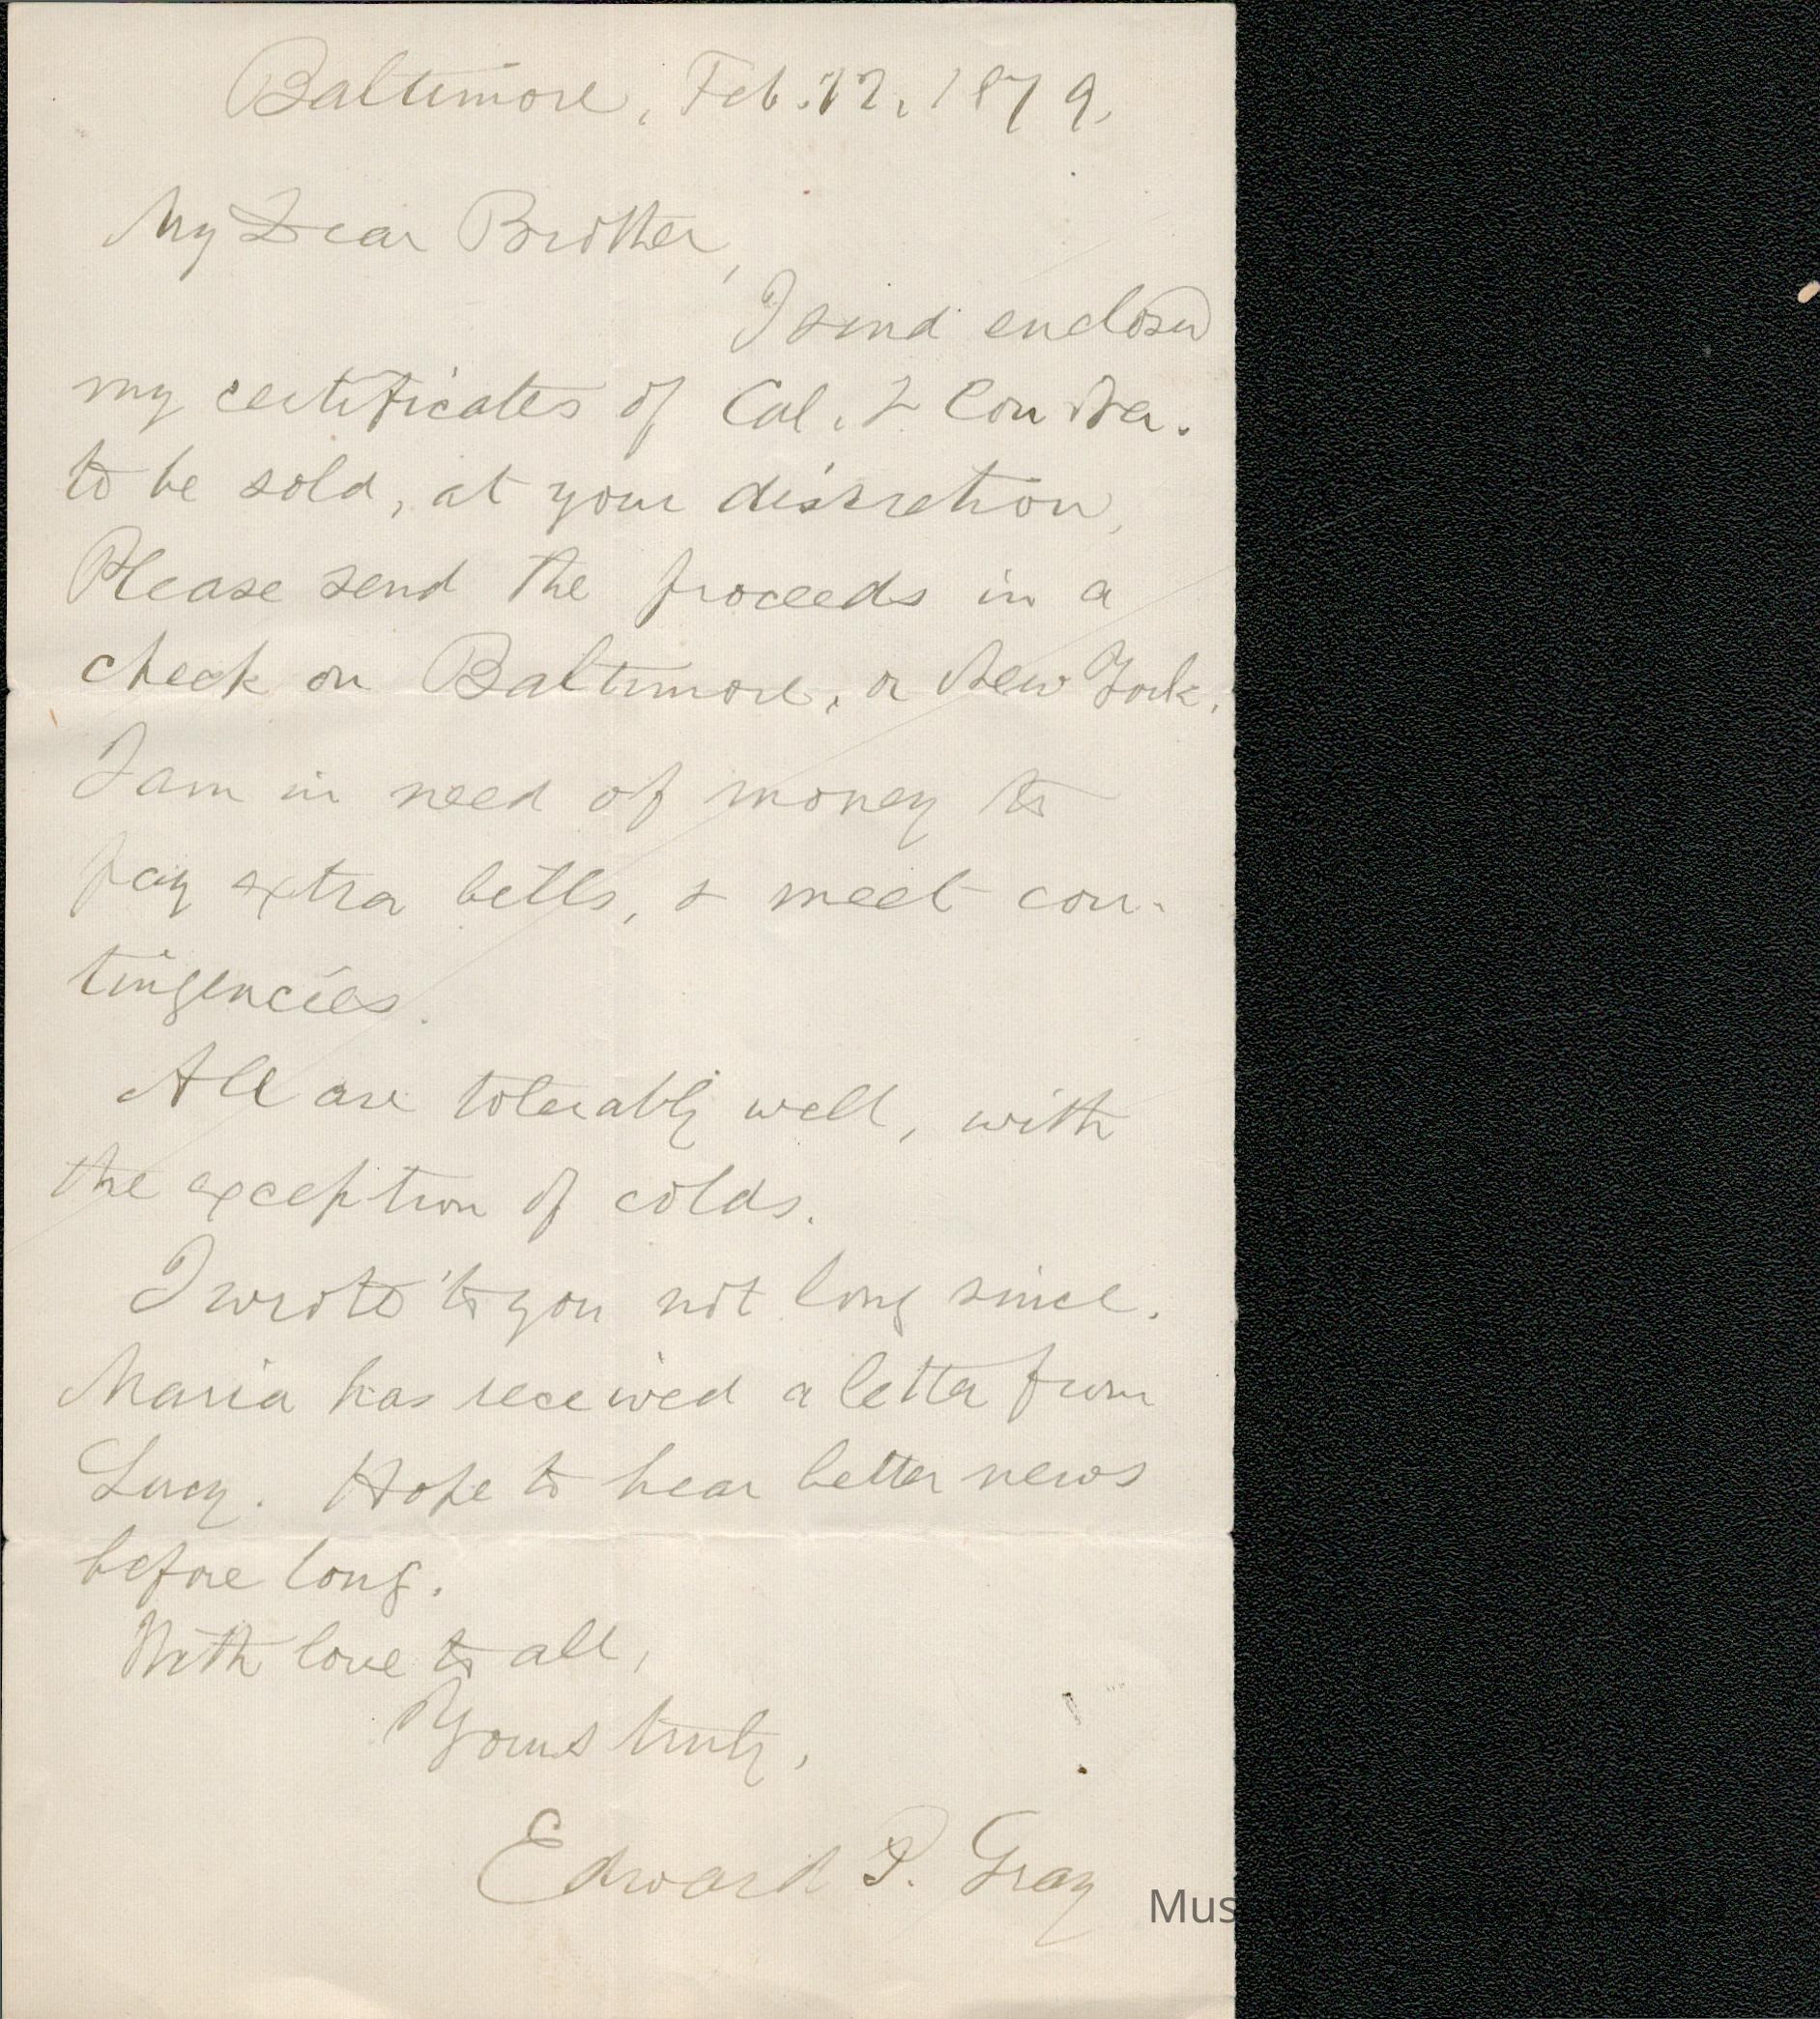 Baltimore, Feb. 12, 1879.
My Dear Brother,
I send enclosed
my certificates of Cal. &
to be sold, at your discretion,
Please send the proceeds in a
check on Baltimore, or New York.
I am in need of money to
pay extra bills, & meet con-
tingencies.
All are tolerably well, with
the exception of colds.
I wrote to you not long since.
Maria has received a letter from
Lucy. Hope to hear better news
before long.
With love to all,
Yours truly,
Edward P. Gray
Mus